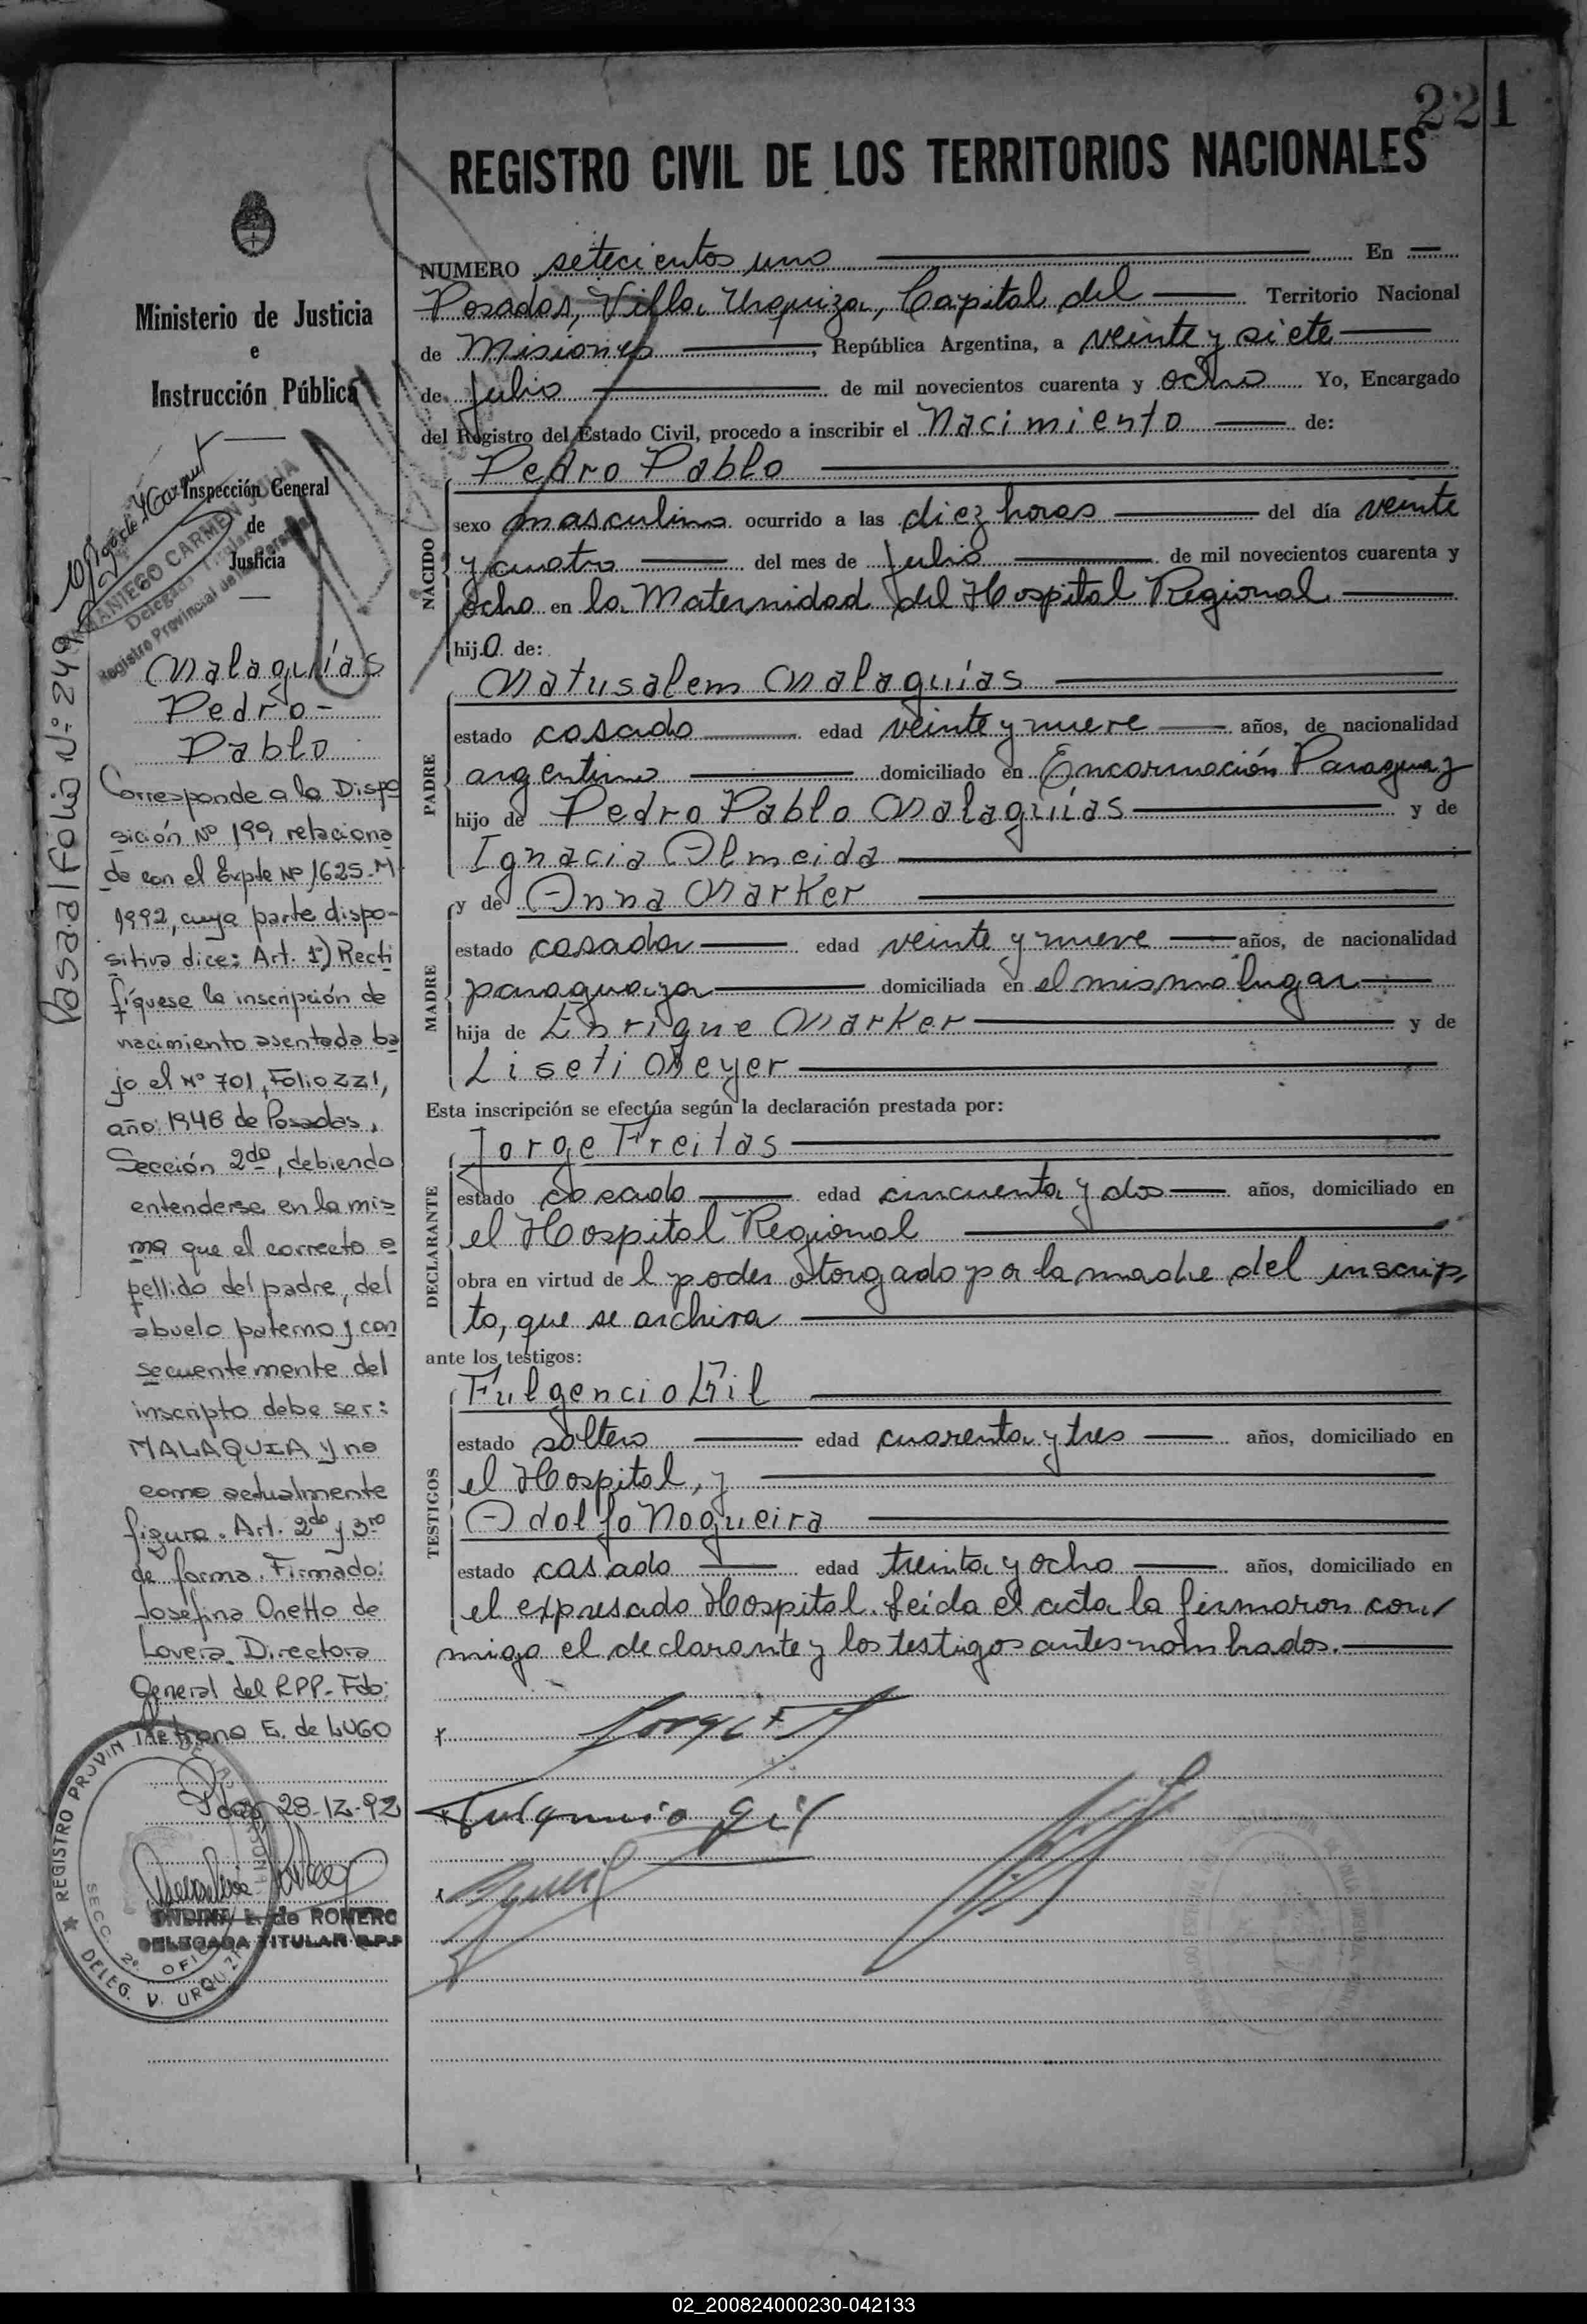 221
REGISTRO CIVIL DE LOS TERRITORIOS NACIONALES
Ministerio de Justicia
e
Instrucción Pública
Inspección General
de
Justicia
MANIEGO CARMEN JULIA
Delegada Titular
Registro Provincial de las Personas
Pasa al folio Nº 249
Malaguías
Pedro-
Pablo
Corresponde a la Dispo
sición Nº 199 relaciona
da con el Expte Nº 1625-M-
1992, cuya parte dispo-
sitiva dice: Art. 1º) Recti
fíquese la inscripción de
nacimiento asentada ba
jo el Nº 701, Folio 221,
año: 1948 de Posadas,
Sección 2da, debiendo
entenderse en la mis
ma que el correcto a
pellido del padre, del
abuelo paterno y con
secuentemente del
inscripto debe ser:
MALAQUIA y no
como actualmente
figura. Art. 2do y 3ro
de forma. Firmado:
Josefina Onetto de
Lovera. Directora
General del RPP- Fdo:
Petrona E. de LUGO
Pdas, 28-12-92
ONDINA L. de ROMERO
DELEGADA TITULAR R.P.P
REGISTRO PROVIN DE LAS PERSONAS
SECC. 2ª OFI
DELEG. V. URQUIZA
NUMERO setecientos uno En
Posadas, Villa Urquiza, Capital del Territorio Nacional
de Misiones, República Argentina, a veinte y siete
de Julio de mil novecientos cuarenta y ocho Yo, Encargado
del Registro del Estado Civil, procedo a inscribir el Nacimiento de:
NACIDO
Pedro Pablo
sexo masculino ocurrido a las diez horas del día veinte
y cuatro del mes de Julio de mil novecientos cuarenta y
ocho en la Maternidad del Hospital Regional
hijo de:
PADRE
Matusalem Malaguías
estado casado edad veinte y nueve años, de nacionalidad
argentino domiciliado en Encarnación Paraguay
hijo de Pedro Pablo Malaguías y de
Ignacia Almeida
MADRE
y de Anna Marker
estado casada edad veinte y nueve años, de nacionalidad
paraguaya domiciliada en el mismo lugar
hija de Enrique Marker y de
Liseti Meyer
Esta inscripción se efectúa según la declaración prestada por:
DECLARANTE
Jorge Freitas
estado casado edad cincuenta y dos años, domiciliado en
el Hospital Regional
obra en virtud del poder otorgado por la madre del inscrip,
to, que se archiva
ante los testigos:
TESTIGOS
Fulgencio Gil
estado soltero edad cuarenta y tres años, domiciliado en
el Hospital, y
Adolfo Nogueira
estado casado edad treinta y ocho años, domiciliado en
el expresado Hospital. Leída el acta la firmaron con/
migo el declarante y los testigos antes nombrados.
Jorge F
Fulgencio Gil
02_200824000230-042133